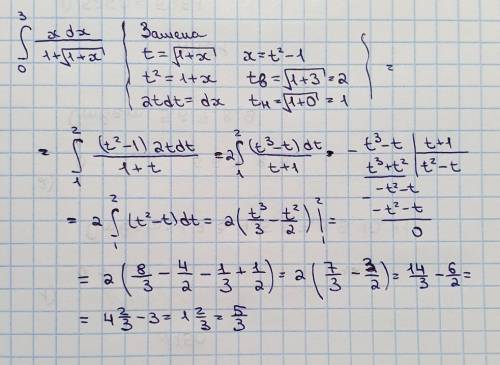 ∫₀³ x dx / (1+√(1+x)) { Замена
t = √(1+x)   x = t² − 1
t² = 1+x   tв = √(1+3) = 2
2tdt = dx   tн = √(1+0) = 1 } =
= ∫₁² (t²−1) 2tdt / (1+t) = 2∫₁² (t³−t) dt / (t+1) =
− t³−t | t+1
t³+t² | t²−t
−t²−t
−t²−t
0
= 2 ∫₁² (t²−t) dt = 2 (t³/3 − t²/2) |₁² =
= 2 (8/3 − 4/2 − 1/3 + 1/2) = 2 (7/3 − 3/2) = 14/3 − 6/2 =
= 4 2/3 − 3 = 1 2/3 = 5/3